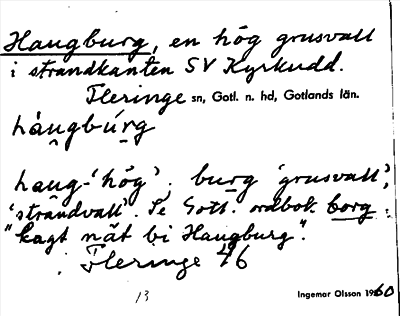 Haugburg, en hög grusvall
i strandkanten SV Kyrkudd.
Fleringe sn, Gotl. n. hd, Gotlands län.
hàugbúrg
haug- 'hög'. burg 'grusvall',
'strandvall'. Se Gotl. ordbok borg:
"kagt nät bi Haugburg".
Fleringe 46
13
Ingemar Olsson 1960